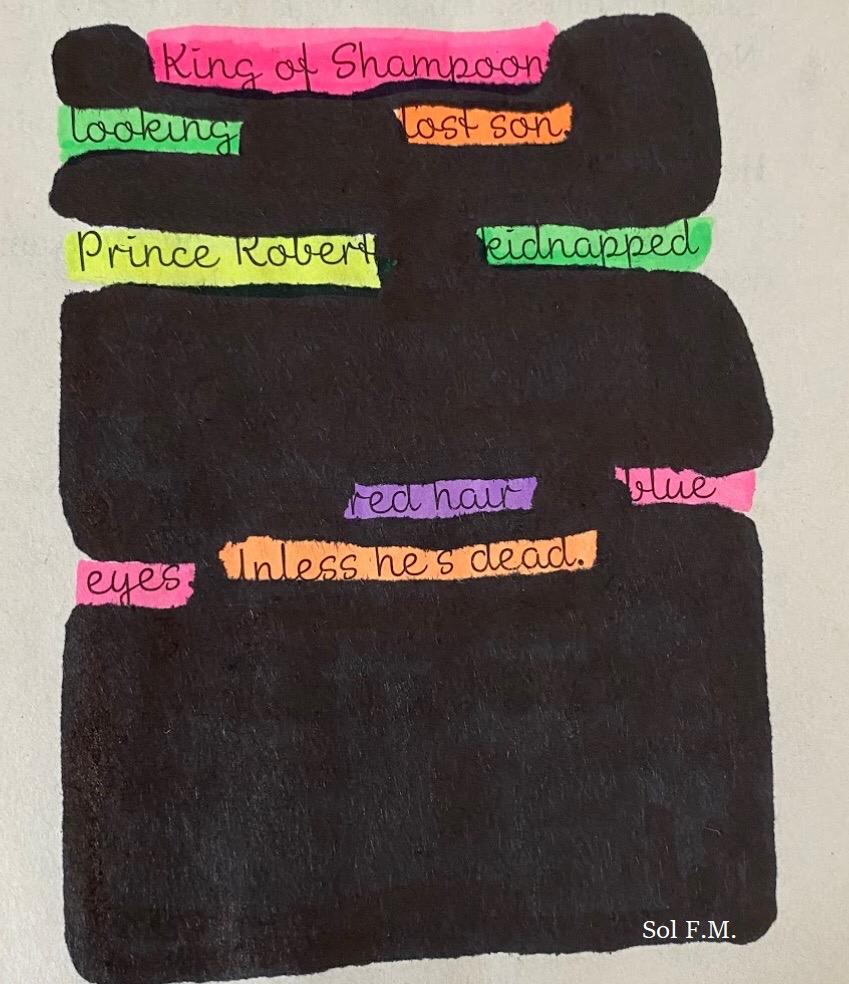 King of Shampoon
looking lost son.
Prince Robert kidnapped
red hair blue
eyes Unless he's dead.
Sol F.M.